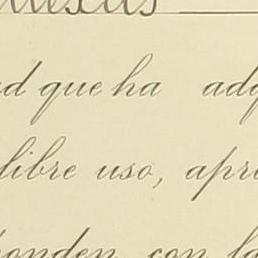 d que ha adq
libre uso, apre
onden con la